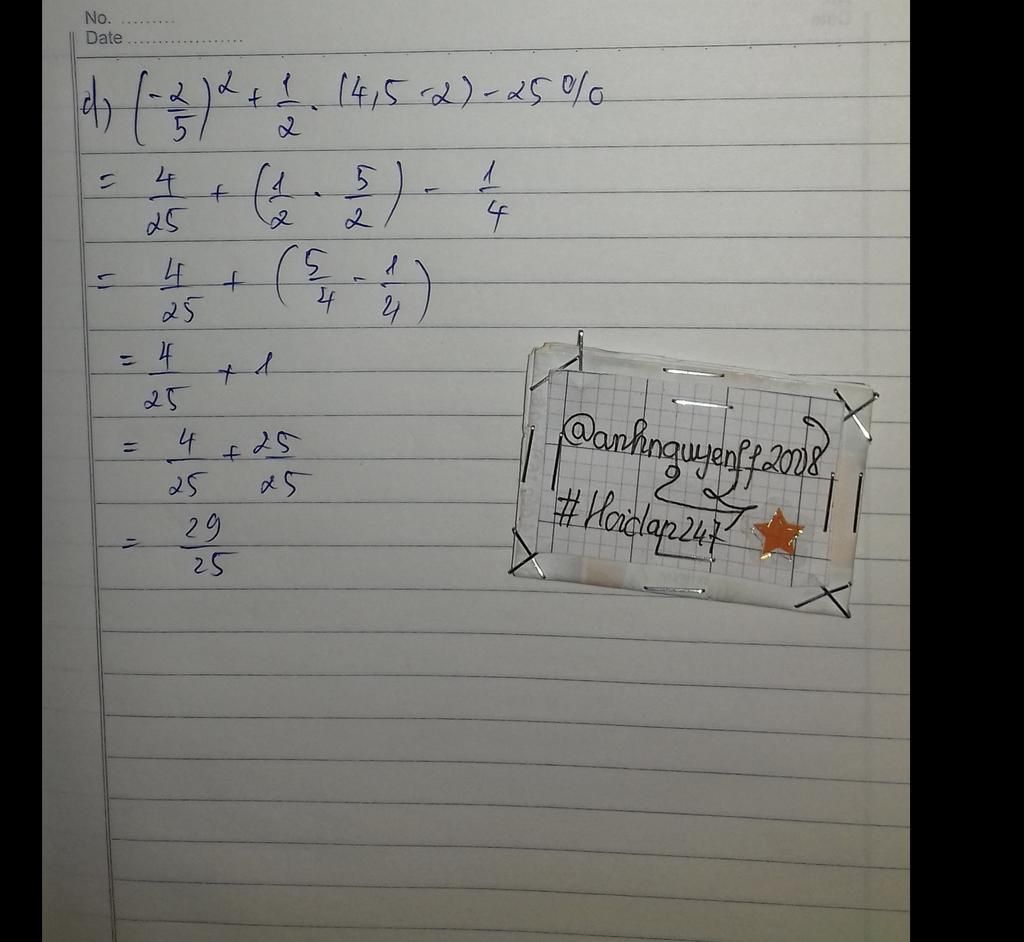 No. .........
Date ..................
d) (-2/5)^2 + 1/2 . (4,5 - 2) - 25%
= 4/25 + (1/2 . 5/2) - 1/4
= 4/25 + (5/4 - 1/4)
= 4/25 + 1
= 4/25 + 25/25
= 29/25
@anhnguyenff2008
#Hoidap247